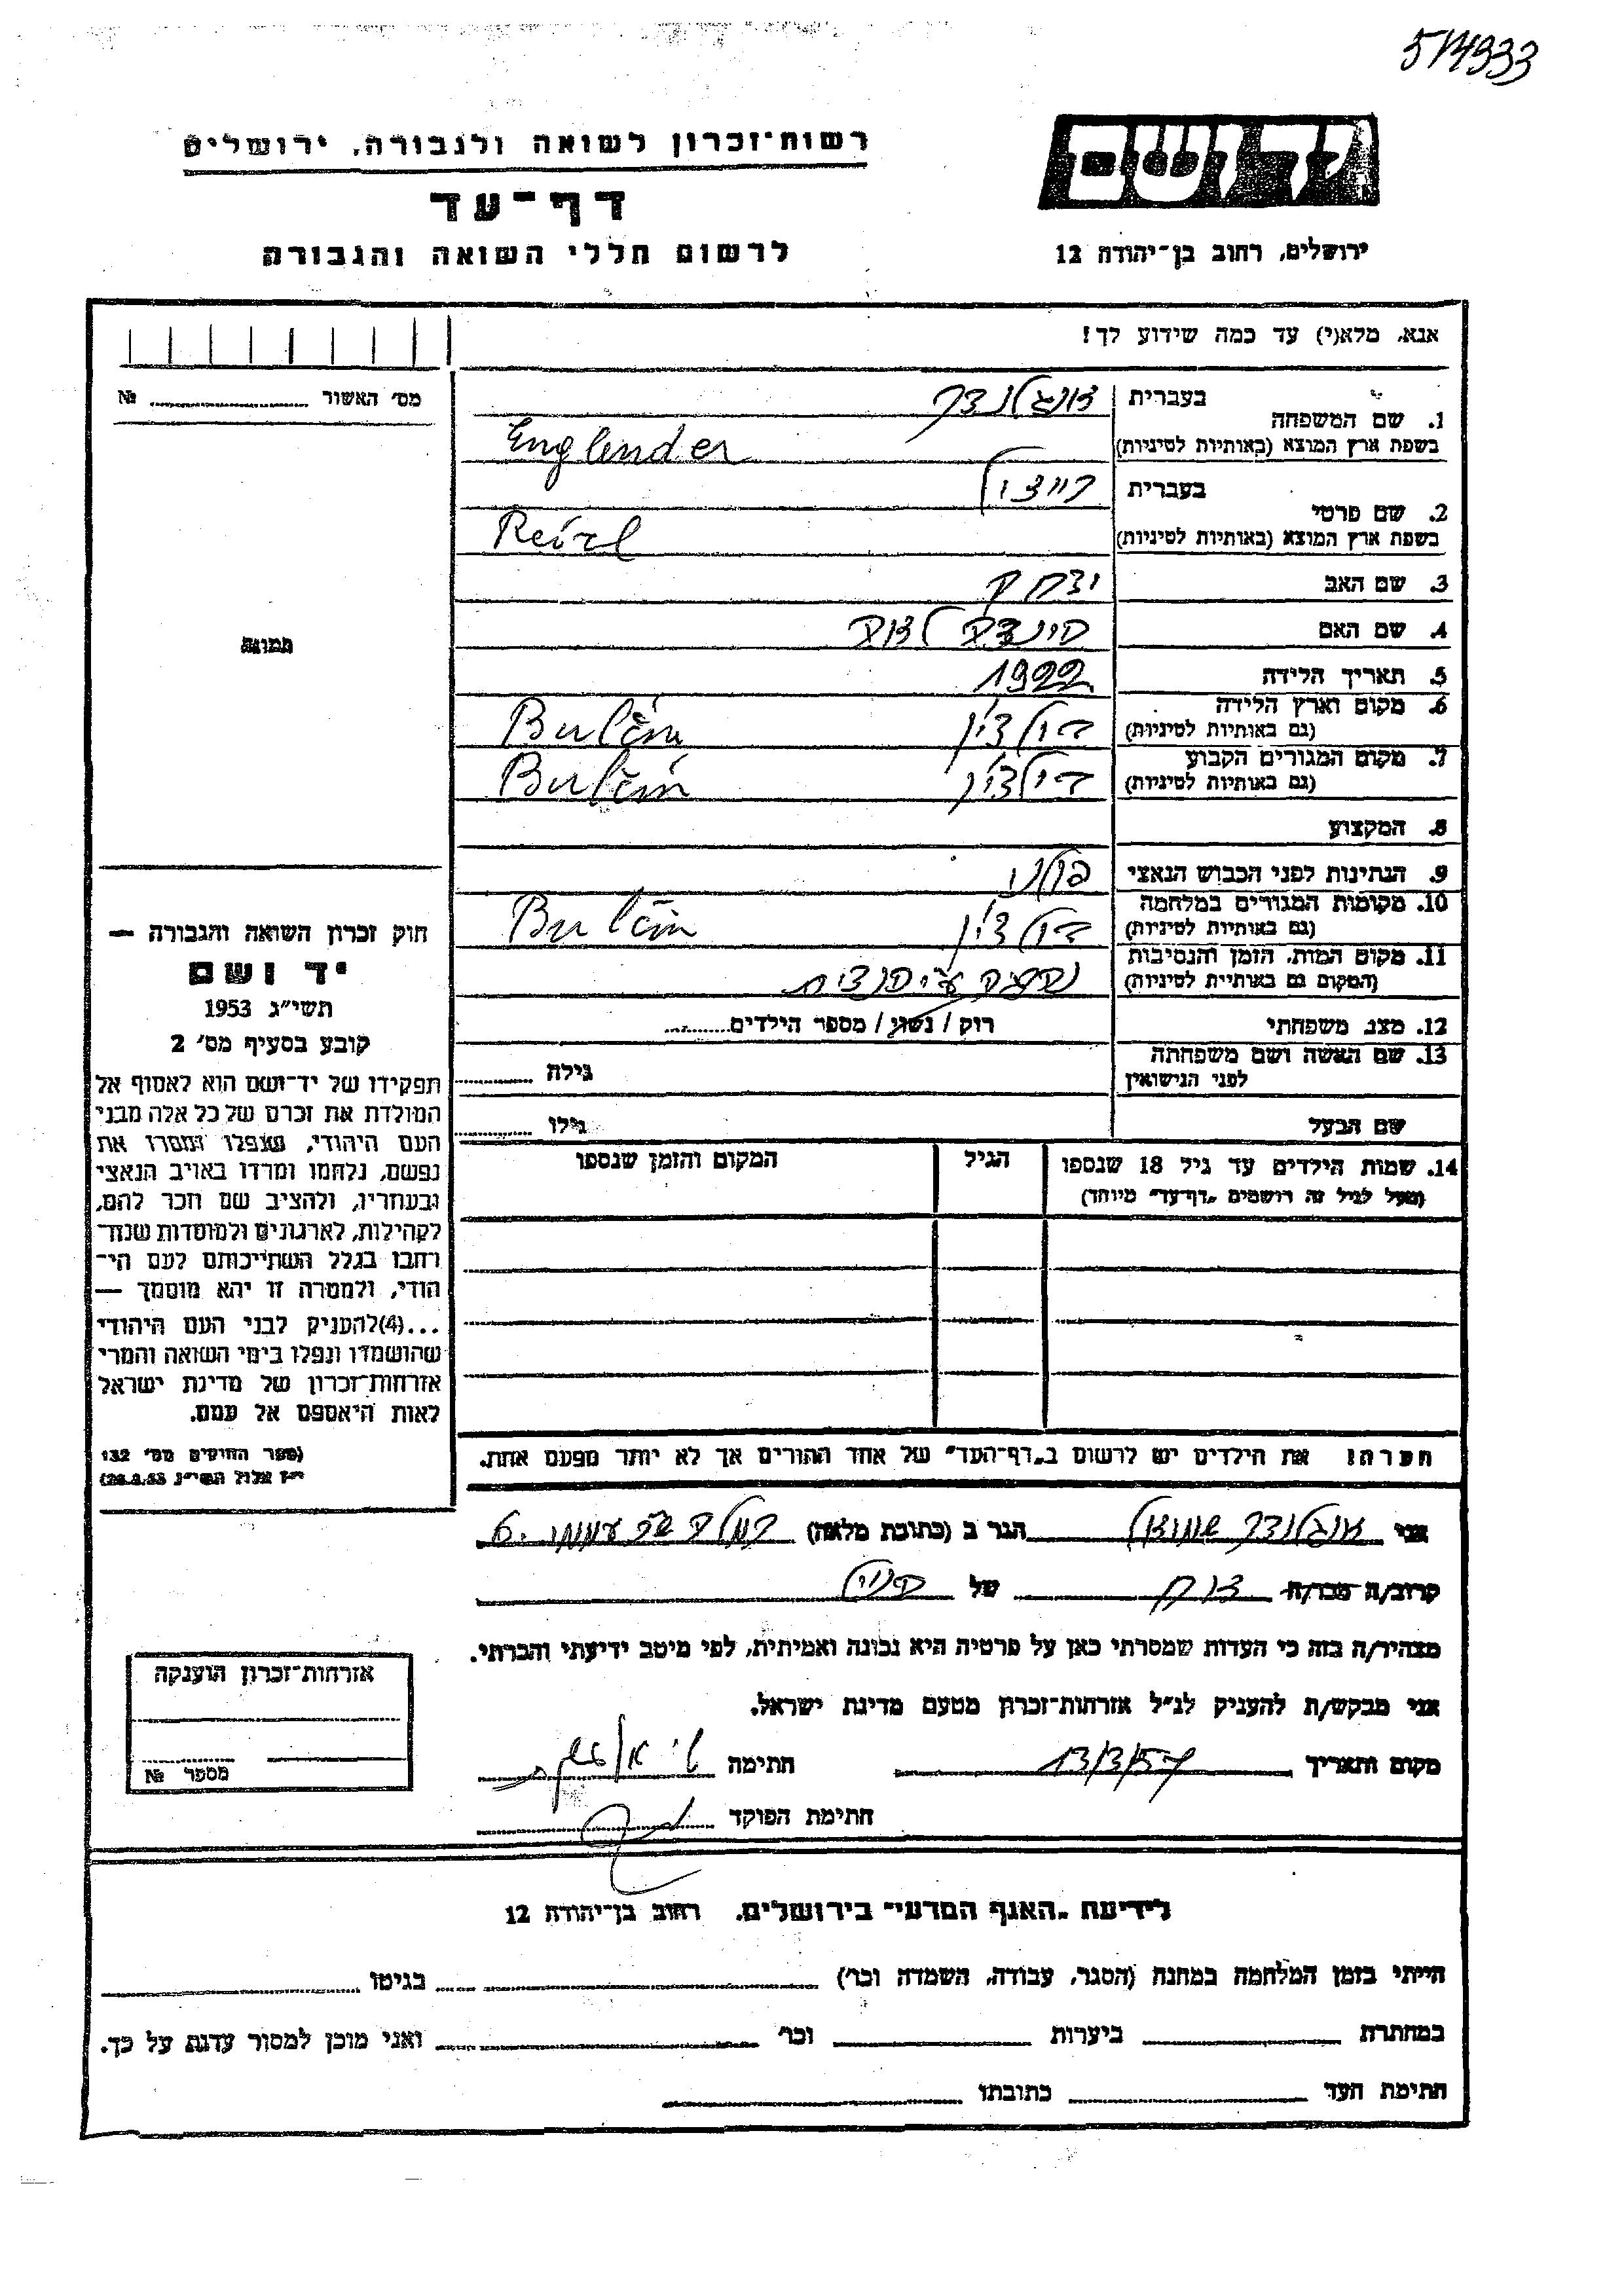 514933
רשות־זכרון לשואה ולגבורה, ירושלים
דף־עד
לרשום חללי השואה והגבורה
יד ושם
ירושלים, רחוב בן־יהודה 12
אנא, מלא(י) עד כמה שידוע לך!
מס' האשור № 
1. שם המשפחה
בעברית
אנגלנדר
בשפת ארץ המוצא (באותיות לטיניות)
Englender
2. שם פרטי
בעברית
רייזל
בשפת ארץ המוצא (באותיות לטיניות)
Reizl
3. שם האב
יצחק
4. שם האם
5. תאריך הלידה
1922
6. מקום וארץ הלידה
(גם באותיות לטיניות)
7. מקום המגורים הקבוע
(גם באותיות לטיניות)
8. המקצוע
9. הנתינות לפני הכבוש הנאצי
10. מקומות המגורים במלחמה
(גם באותיות לטיניות)
11. מקום המות, הזמן והנסיבות
(המקום גם באותיית לטיניות)
12. מצב משפחתי
רוק / נשוי / מספר הילדים
13. שם האשה ושם משפחתה
לפני הנישואין
גילה
שם הבעל
גילו
14. שמות הילדים עד גיל 18 שנספו
(מעל לגיל זה רושמים „דף־עד" מיוחד)
הגיל
המקום והזמן שנספו
תמונה
חוק זכרון השואה והגבורה —
יד ושם
תשי"ג 1953
קובע בסעיף מס' 2
תפקידו של יד־ושם הוא לאסוף אל
המולדת את זכרם של כל אלה מבני
העם היהודי, שנפלו ומסרו את
נפשם, נלחמו ומרדו באויב הנאצי
ובעוזריו, ולהציב שם וזכר להם,
לקהילות, לארגונים ולמוסדות שנח־
רבו בגלל השתייכותם לעם הי־
הודי, ולמטרה זו יהא מוסמך —
...(4)להעניק לבני העם היהודי
שהושמדו ונפלו בימי השואה והמרי
אזרחות־זכרון של מדינת ישראל
לאות היאספם אל עמם.
(ספר החוקים מס' 132
י"ז אלול תשי"ג 28.8.53)
הערה! את הילדים יש לרשום ב„דף־העד" של אחד ההורים אך לא יותר מפעם אחת.
אני אנגלנדר שמואל הגר ב (כתובת מלאה)
קרוב/ה מכר/ה של
מצהיר/ה בזה כי העדות שמסרתי כאן על פרטיה היא נכונה ואמיתית, לפי מיטב ידיעתי והכרתי.
אני מבקש/ת להעניק לנ"ל אזרחות־זכרון מטעם מדינת ישראל.
מקום ותאריך 13/3/57 חתימה
חתימת הפוקד
אזרחות־זכרון הוענקה
מספר №
לידיעת „האגף המדעי" בירושלים, רחוב בן־יהודה 12
הייתי בזמן המלחמה במחנה (הסגר, עבודה, השמדה וכר') בגיטו
במחתרת ביערות וכר' ואני מוכן למסור עדות על כך.
חתימת העד כתובתו